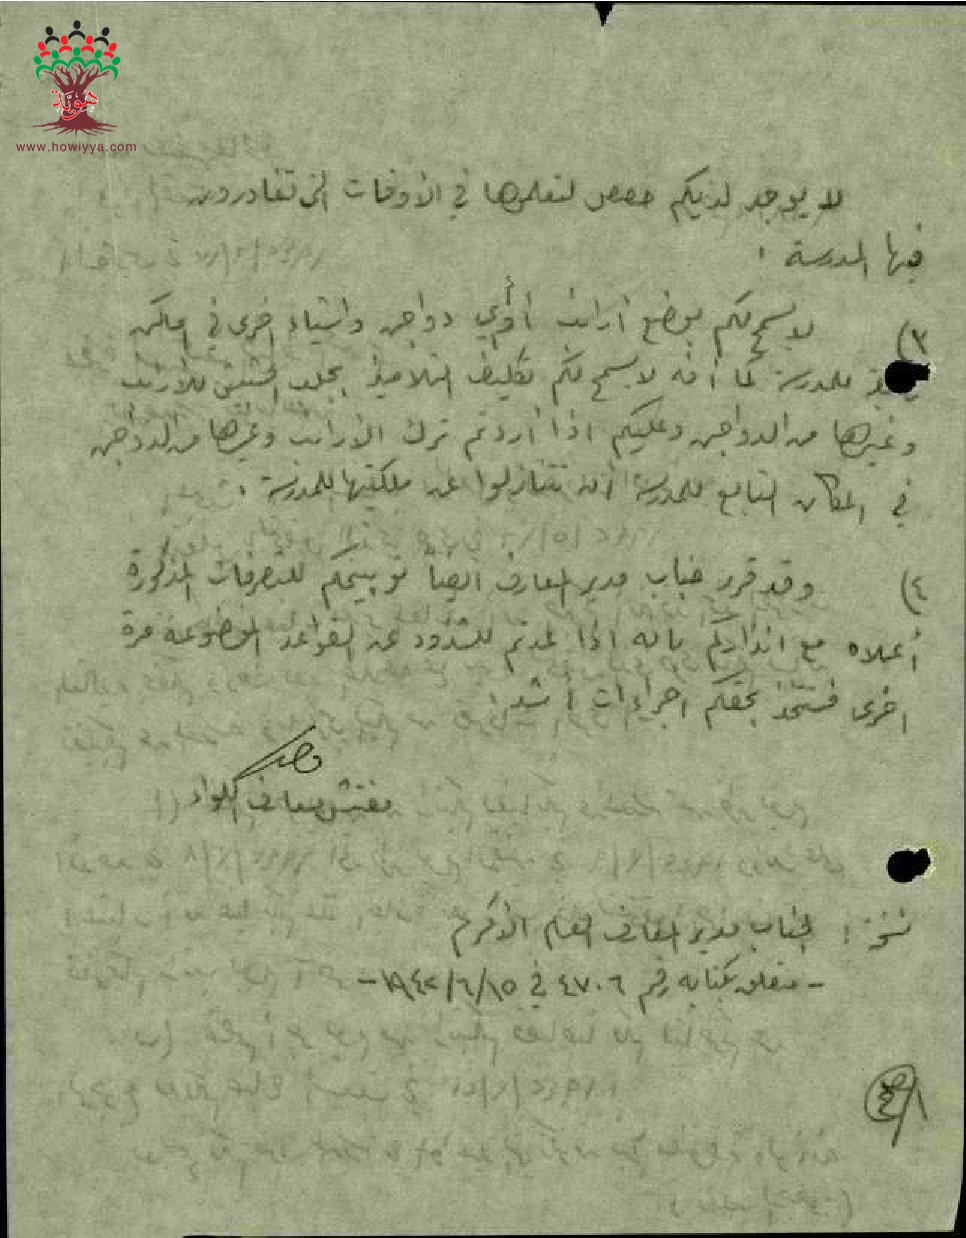 هوية
www.howiyya.com
لا يوجد لديكم حصص لتعلموها في الأوقات التي تغادرون
فيها المدرسة .
٣) لا يسمح لكم بوضع أرانب أو أي دواجن وأشياء اخرى في اماكن
للمدرسة كما أنه لا يسمح لكم تكليف التلاميذ بجلب الحشيش للأرانب
وغيرها من الدواجن وعليكم اذا أردتم ترك الأرانب وغيرها من الدواجن
في المكان التابع للمدرسة أن تتنازلوا عن ملكيتها للمدرسة .
٤) وقد قرر جناب مدير المعارف ايضاً توبيخكم للتصرفات المذكورة
أعلاه مع انذاركم بأنه اذا عدتم للشذوذ عن القواعد الموضوعة مرة
اخرى فستتخذ بحقكم اجراءات أشد .
مفتش معارف اللواء
نسخة : لجناب مدير المعارف العام الأكرم
- متعلق بكتابه رقم ٤٧٠٦ في ١٥/٦/١٩٤٢ -